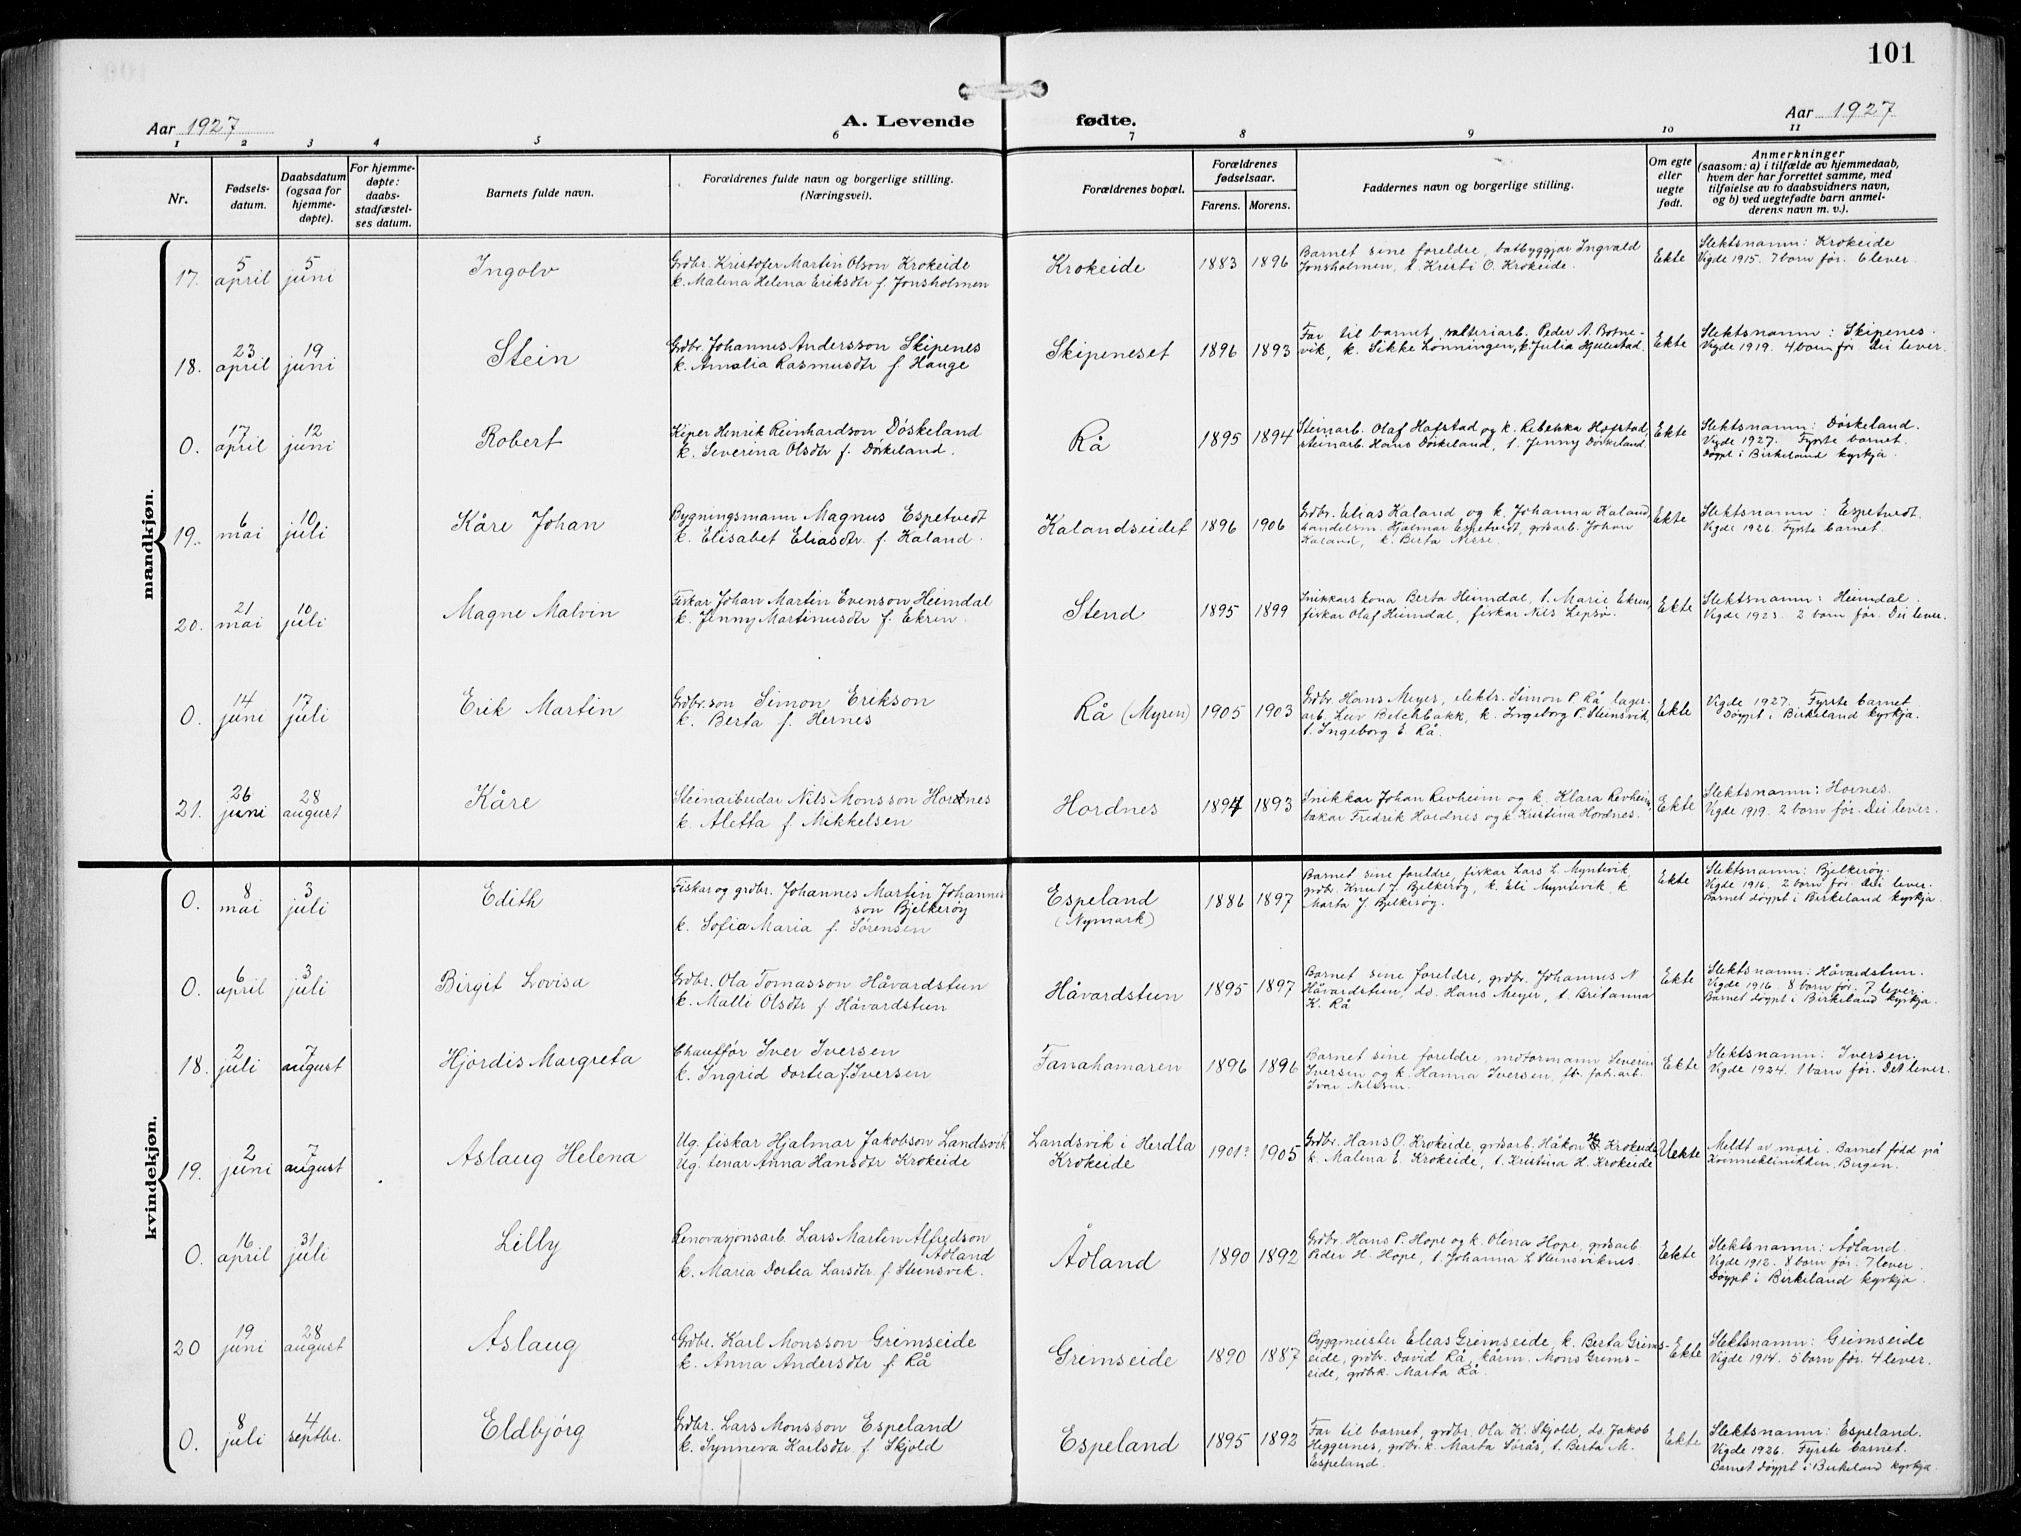 101
Aar 1927
A. Levende fødte.
Aar 1927
1 2 3 4 5 6 7 8 9 10 11
Nr.
Fødsels-
datum.
Daabsdatum
(ogsaa for
hjemme-
døpte).
For hjemme-
døpte:
daabs-
stadfæstel-
ses datum.
Barnets fulde navn.
Forældrenes fulde navn og borgerlige stilling.
(Næringsvei).
Forældrenes bopæl.
Forældrenes
fødselsaar.
Farens. Morens.
Faddernes navn og borgerlige stilling.
Om egte
eller
uegte
født.
Anmerkninger
(saasom: a) i tilfælde av hjemmedaab,
hvem der har forrettet samme, med
tilføielse av to daabsvidners navn,
og b) ved uegtefødte barn anmel-
derens navn m. v.).
mandkjøn.
17. 5 april 5 juni Ingolv
Grdbr. Kristofer Martin Olson Krokeide
k. Malena Helena Eriksdtr f. Jonsholmen
Krokeide 1883 1896
Barnet sine foreldre, båtbyggjar Ingvald
Jonsholmen, t. Kristi O. Krokeide.
Ekte
Slektsnamn: Krokeide
Vigde 1915. 7 born før. 6 lever.
18. 23 april 19 juni Stein
Grdbr. Johannes Andersson Skipenes
k. Amalia Rasmusdtr f. Hauge
Skipeneset 1896 1893
Far til barnet, Peder A. Botne-
vik, k. Sikke Lönningen, k. Julia Hjulestad.
Ekte
Slektsnamn: Skipenes.
Vigde 1919. 4 born før. Dei lever.
0. 17 april 12 juni Robert
Kiper Henrik Reinhardson Døskeland
k. Severina Olsdtr f. Døskeland.
Rå 1895 1894
Steinarb. Olaf Hafstad og k. Rebekka Hafstad,
steinarb. Hans Døskeland, t. Jenny Døskeland
Ekte
Slektsnamn: Døskeland.
Vigde 1927. Fyrste barnet.
Døypt i Birkeland kyrkja.
19. 6 mai 10 juli Kåre Johan
Bygningsmann Magnus Espetvedt
k. Elisabet Eliasdtr. f. Kaland.
Kalandseidet 1896 1906
Grdbr. Elias Kaland og k. Johanna Kaland,
handelsm. Hjalmar Espetvedt, grdsarb. Johan
Kaland, k. Berta Nesse.
Ekte
Slektsnamn: Espetvedt.
Vigde 1926. Fyrste barnet.
20. 21 mai 10 juli Magne Malvin
Fiskar Johan Martin Evenson Heimdal
k. Jenny Martinusdtr f. Ekren.
Stend 1895 1899
Snikkars kona Berta Heimdal, t. Marie Ekren,
fiskar Olaf Heimdal, fiskar Nils Lepsø.
Ekte
Slektsnamn: Heimdal.
Vigde 1923. 2 born før. Dei lever.
0. 14 juni 17 juli Erik Martin
Grdbr.son Simon Erikson
k. Berta f. Hernes
Rå (Myren) 1905 1903
Grdbr. Hans Meyer, elektr. Simon P. Rå, lager-
arb. k. Ingeborg P. Steinsvik,
t. Ingeborg E. Rå.
Ekte
Vigde 1927. Fyrste barnet.
Døypt i Birkeland kyrkja.
21. 26 juni 28 august Kåre
Steinarbeidar Nils Monsson Hordnes
k. Aletta f. Mikkelsen
Hordnes 1894 1893
Snikkar Johan Revheim og k. Klara Revheim,
bakar Fredrik Hordnes og k. Kristina Hordnes.
Ekte
Slektsnamn: Hornes.
Vigde 1919. 2 born før. Dei lever.
kvindekjøn.
0. 8 mai 3 juli Edith
Fiskar og grdbr. Johannes Martin Johannes-
son Bjelkerøy
k. Sofia Maria f. Sørensen
Espeland
(Nymark)
1886 1897
Barnet sine foreldre, fiskar Lars L. Myntevik,
grdbr. Knut J. Bjelkerøy, k. Eli Myntevik, k
Marta J. Bjelkerøy.
Ekte
Slektsnamn: Bjelkerøy.
Vigde 1916. 2 born før. Dei lever.
Barnet døypt i Birkeland kyrkja.
0. 6 april 3 juli Birgit Lovisa
Grdbr. Ola Tomasson Håvardstun
k. Malli Olsdtr f Håvardstun
Håvardstun 1895 1897
Barnet sine foreldre, grdbr. Johannes N
Håvardstun, do. Hans Meyer, t. Britanna
K. Rå
Ekte
Slektsnamn: Håvardstun.
Vigde 1916. 8 born før. 7 lever.
Barnet døypt i Birkeland kyrkja.
18. 2 juli 7 august Hjördis Margreta
Chauffør Iver Iversen
k. Ingrid Dortea f. Iversen
Fanahamaren 1896 1896
Barnet sine foreldre, motormann Severin
Iversen og k. Hanna Iversen,
Ivar Nilsen.
Ekte
Slektsnamn: Iversen.
Vigde 1924. 1 born før. Det lever.
19. 2 juni 7 august Aslaug Helena
Ug. fiskar Hjalmar Jakobson Landsvik
Ug. tenar Anna Hansdtr Krokeide
Landsvik i Herdla
Krokeide
1901? 1905
Grdbr. Hans O. Krokeide, grdsarb. Håkon H Krokeide
k. Malena E. Krokeide, t. Kristina H. Krokeide
Uekte
Meldt av mori. Barnet född på
Kvinneklinikken, Bergen.
0. 16 april 31 juli Lilly
Renovasjonsarb. Lars Martin Alfredson
Ådland
k. Maria Dortea Larsdtr f. Steinsvik.
Ådland 1890 1892
Grdbr. Hans P. Hope og k. Olena Hope, grdsarb
Peder H. Hope, t. Johanna L Steinsviknes.
Ekte
Slektsnamn: Ådland.
Vigde 1912. 8 born før. 7 lever.
Døypt i Birkeland kyrkja.
20 19 juni 28 august Aslaug
Grdbr. Karl Monsson Grimseide
k. Anna Andersdtr f Rå
Grimseide 1890 1887
Byggmeister Elias Grimseide, k. Berta Grims-
eide, grdbr. David Rå, Mons Grims-
eide, grdbrk. Marta Rå.
Ekte
Slektsnamn: Grimseide
Vigde 1914. 5 born før. 4 lever.
0. 8 juli 4 septbr. Eldbjørg
Grdbr. Lars Monsson Espeland
k. Synneva Karlsdtr f. Skjold
Espeland 1895 1892
Far til barnet, grdbr. Ola K. Skjold, do. Jakob
Heggernes, grdbr.k. Marta Sørås, t. Berta M.
Espeland.
Ekte
Slektsnamn: Espeland.
Vigde 1926. Fyrste barnet.
Barnet døypt i Birkeland kyrkja.